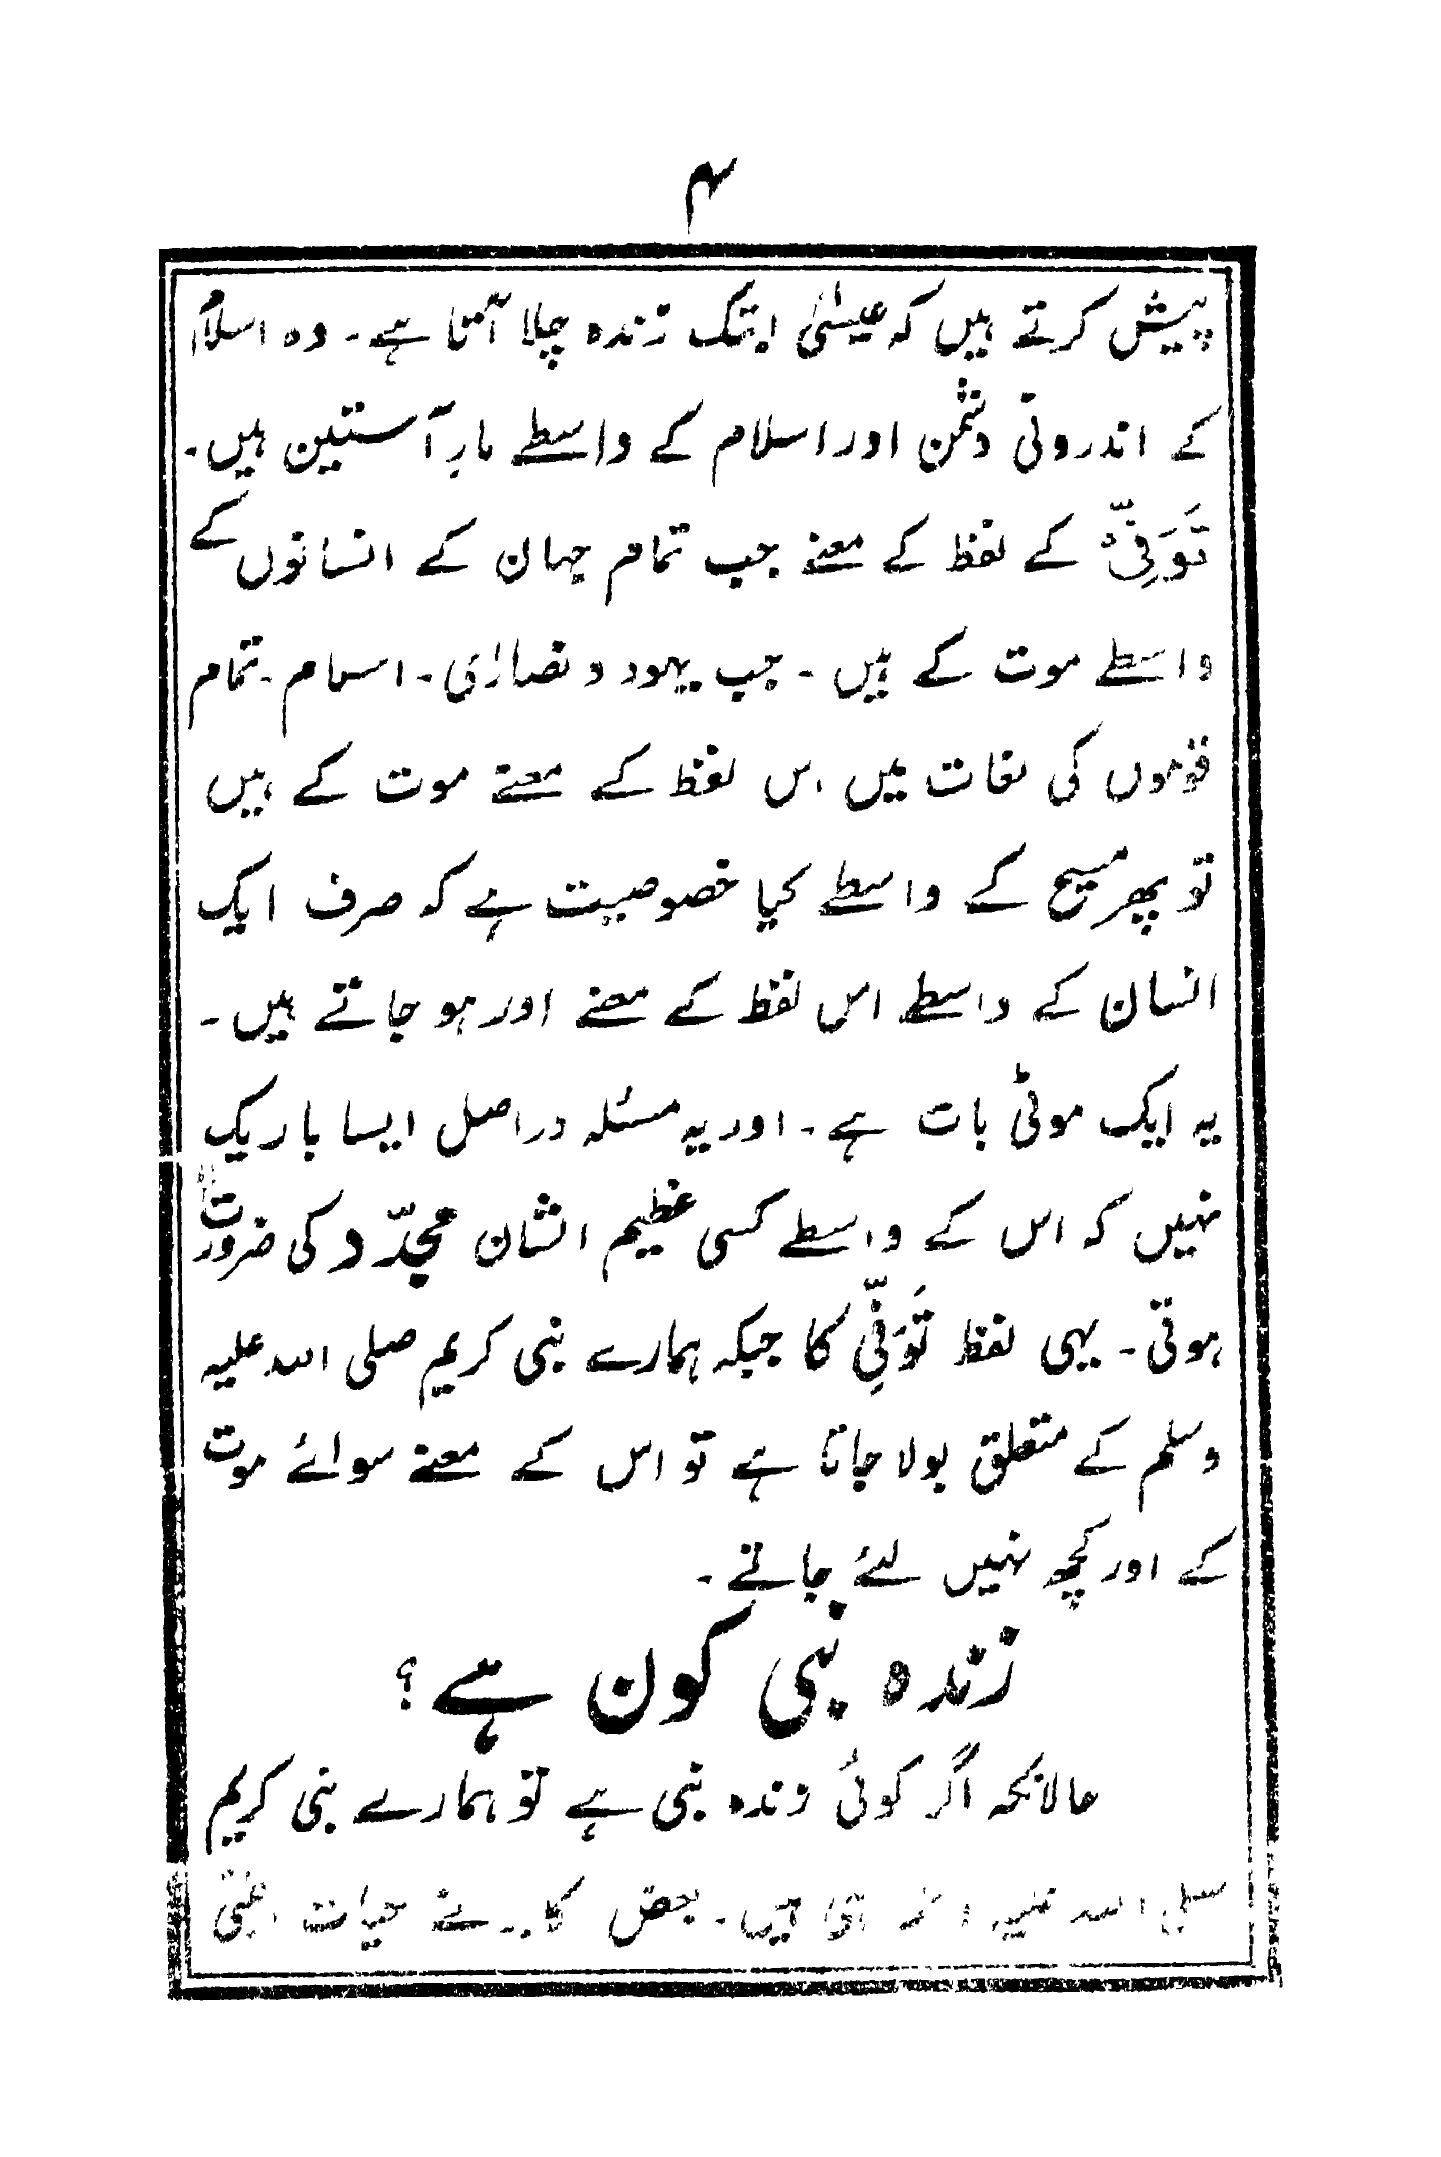 ۴
پیش کرتے ہیں کہ عیسیٰ ابتک زندہ چلا آتا ہے۔ وہ اسلام
کے اندرونی دشمن اور اسلام کے واسطے مارِ آستین ہیں۔
تَوَفِّیْ کے لفظ کے معنے جب تمام جہان کے انسانوں کے
واسطے موت کے ہیں۔ جب یہود و نصاریٰ۔ اسلام۔ تمام
قوموں کی لغات میں اس لفظ کے معنے موت کے ہیں
تو پھر مسیح کے واسطے کیا خصوصیت ہے کہ صرف ایک
انسان کے واسطے اس لفظ کے معنے اور ہو جاتے ہیں۔
یہ ایک موٹی بات ہے۔ اور یہ مسئلہ دراصل ایسا باریک
نہیں کہ اس کے واسطے کسی عظیم الشان مجدّد کی ضرورت
ہوتی۔ یہی لفظ تَوَفِّیْ کا جبکہ ہمارے نبی کریم صلی اللہ علیہ
وسلم کے متعلق بولا جاتا ہے تو اس کے معنے سوائے موت
کے اور کچھ نہیں لئے جاتے۔
زندہ نبی کون ہے؟
حالانکہ اگر کوئی زندہ نبی ہے تو ہمارے نبی کریم
صلی اللہ علیہ وسلم ہی ہیں۔ بعض اکابر نے حیات النبی